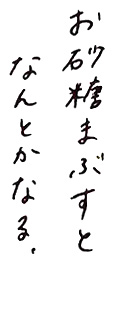 お砂糖まぶすと
なんとかなる.